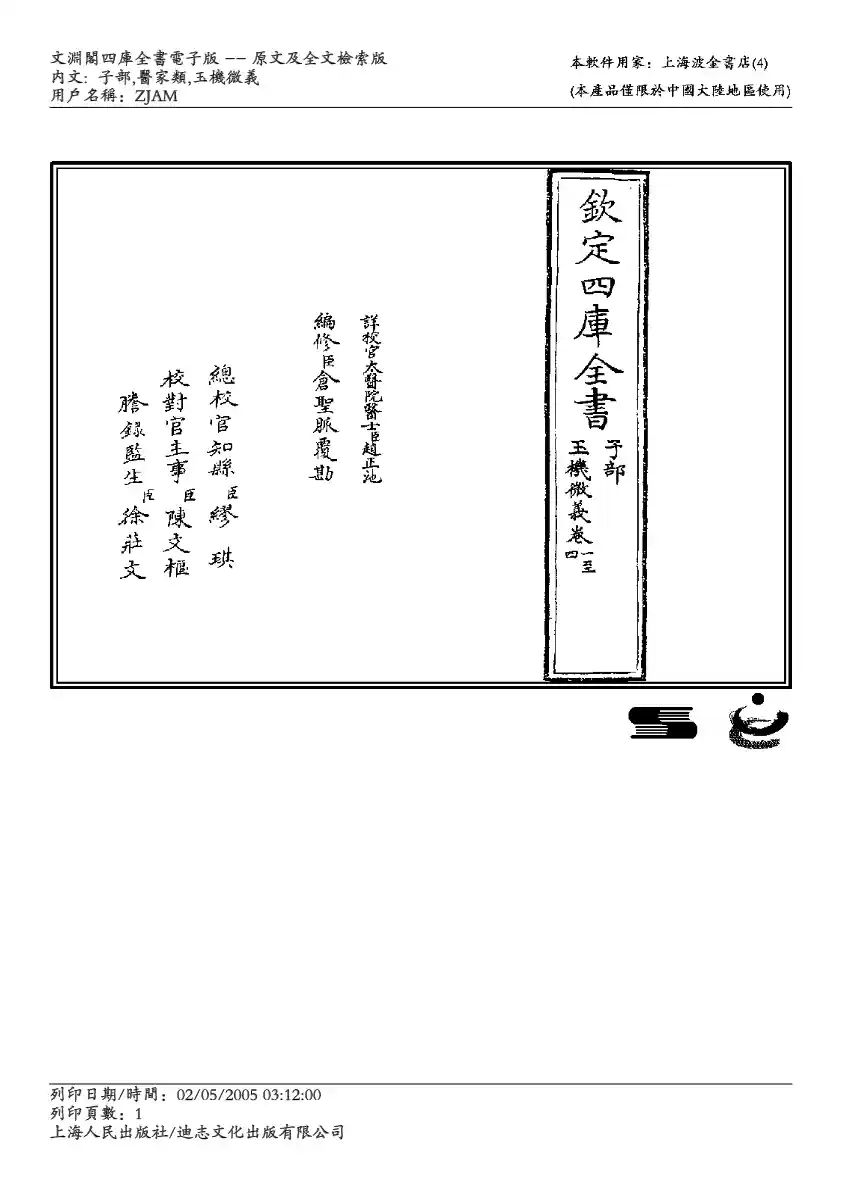 文淵閣四庫全書電子版 -- 原文及全文檢索版
內文: 子部,醫家類,玉機微義
用戶名稱: ZJAM
本軟件用家: 上海波金書店(4)
(本產品僅限於中國大陸地區使用)
欽定四庫全書
子部
玉機微義卷一至四
詳校官太醫院醫士臣趙正池
編修臣倉聖脈覆勘
總校官知縣臣繆琪
校對官主事臣陳文樞
謄錄監生臣徐莊文
列印日期/時間: 02/05/2005 03:12:00
列印頁數: 1
上海人民出版社/迪志文化出版有限公司